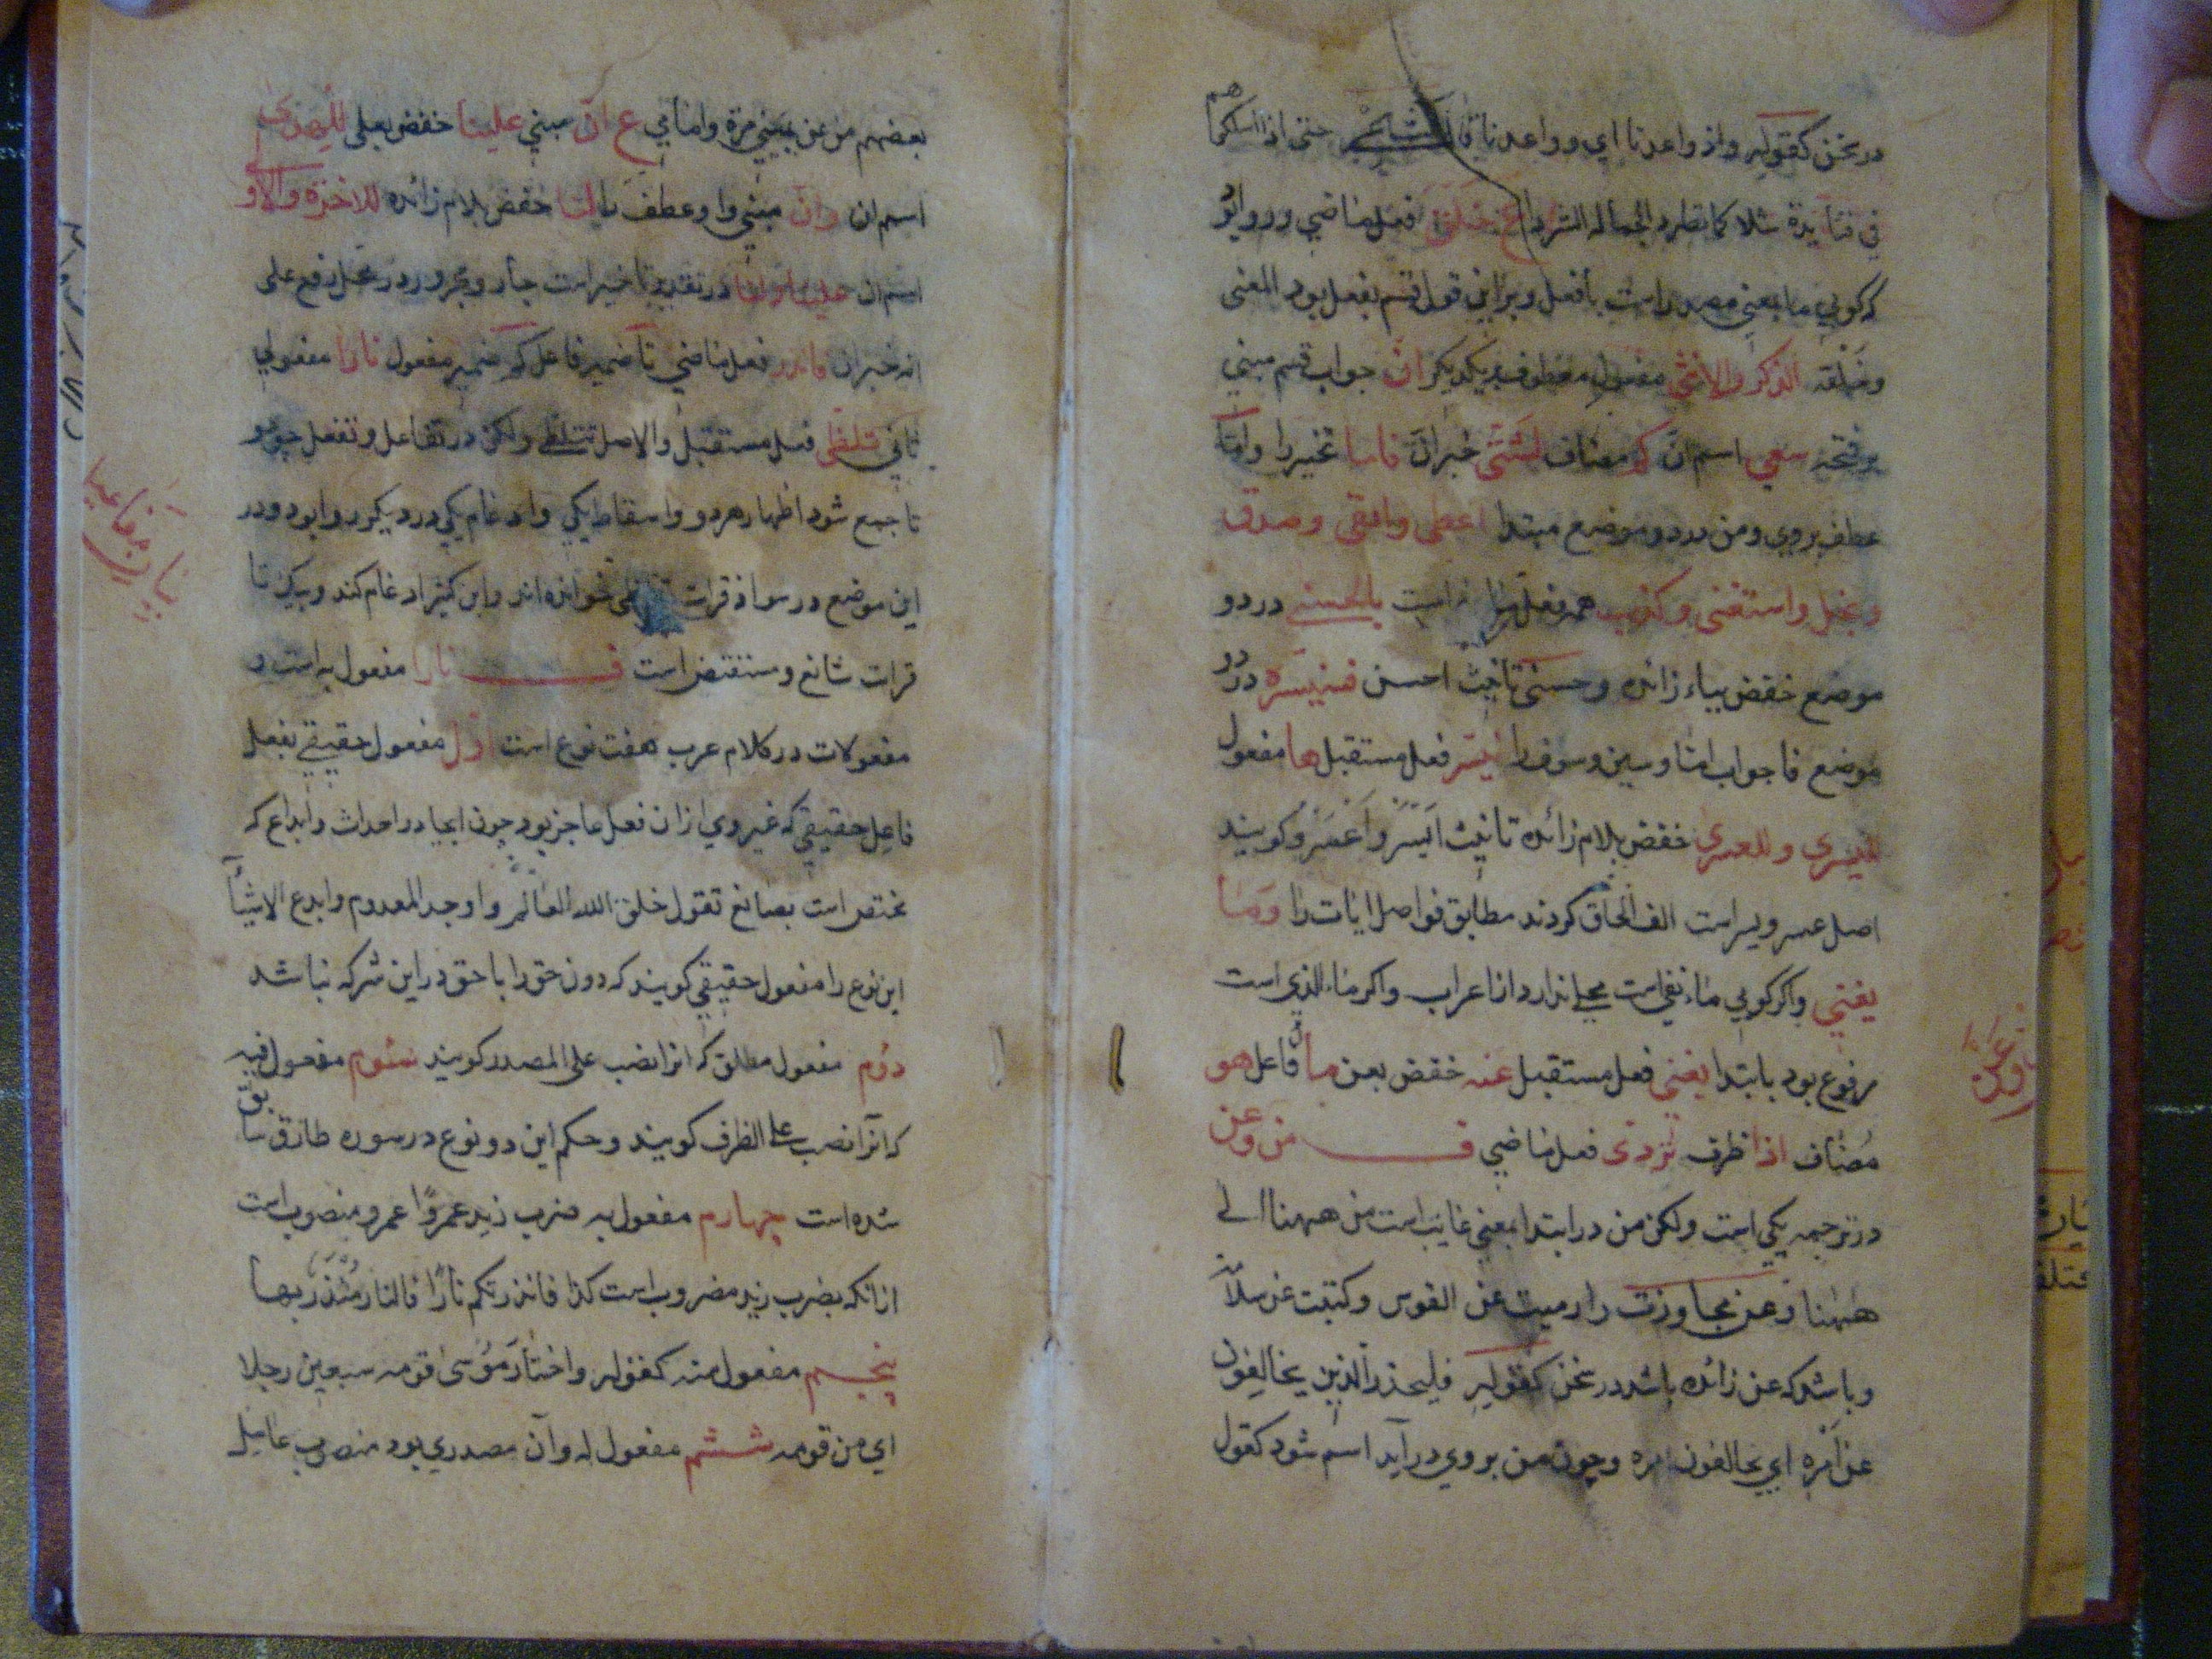 در نحن كقوله واذ واعدنا اي وواعدنا قال الشاعر حتى اذا اسلكوا هم
في قتايدة شلا كما تطرد الجمالة الشردا ع خلق فعل ماضي ودر وايو
كه كويي ما بمعنى مصدر است بافعل وبر اين قول قسم بفعل بود المعنى
وخلقه الذكر والانثى مفعول معطوف بيكديكر ان جواب قسم مبني
بر فتحه سعي اسم ان كم مضاف لشتى خبر ان فاما تخيير را واما
عطف بروي ومن در دو موضع مبتدا اعطى واتقى وصدق
وبخل واستغنى وكذب همه فعلها است بالحسنى در دو
موضع خفض بباء زائده وحسنى تانيث احسن فسنيسره در دو
موضع فا جواب اما وسين وسوف را نيسر فعل مستقبل ها مفعول
لليسرى وللعسرى خفض بلام زائده تانيث ايسر واعسر وكويند
اصل عسر ويسر است الف الحاق كردند مطابق فواصل ايات را وما
يغني واكر كويي ماء نفي است محلي ندارد از اعراب واكر ماء الذي است
مرفوع بود بابتدا يغني فعل مستقبل عنه خفض بعن مال فاعل هو
مضاف اذا ظرف تردى فعل ماضي ف من وعن
در ترجمه يكي است ولكن من در ابتدا بمعنى غايت است من ههنا الى
ههنا وعن مجاوزت را رميت عن القوس وكتبت عن
وباشد كه عن زائده باشد در نحن كقوله فليحذر الذين يخالفون
عن امره اي يخالفون امره وچون من بروي درآيد اسم شود كقول
بعضهم من عن يميني مرة وامامي ع ان مبني علينا خفض بعلى للهدى
اسم ان وان مبني واو عطف يا لنا خفض بلام زائده للاخرة والاو لى
اسم ان علينا ولنا در تقدير تا خبر است جار ومجرور در محل رفع على
انه خبر ان فانذر فعل ماضي تا ضمير فاعل كم ضمير مفعول نارا مفعولي
ثاني تلظى فعل مستقبل والاصل تتلظى ولكن در تفاعل وتفعل چو دو
تا جمع شود اظهار هر دو واسقاط يكي وادغام يكي در ديكر روا بود ودر
اين موضع در سواذ قرات خوانده اند وابن كثير ادغام كند وبيك تا
قرات شائع ومستفيض است ف نارا مفعول به است و
مفعولات در كلام عرب هفت نوع است اول مفعول حقيقي بفعل
فاعل حقيقي كه غير وي از ان فعل عاجز بود چون ايجاد واحداث وابداع كه
مختص است بصانع تقول خلق الله العالم واوجد المعدوم وابدع الاشيأ
اين نوع را مفعول حقيقي كويند كه دون حق را با حق در اين شركه نباشد
دوم مفعول مطلق كه انرا نصب على المصدر كويند سوم مفعول فيه
كه انرا نصب على الظرف كويند وحكم اين دو نوع در سوره طارق سابق
شده است چهارم مفعول به ضرب زيد عمروا عمرو منصوب است
ازانكه بضرب زيد مضروب است كذا فانذرتكم نارا فالنار منذر بها
پنجم مفعول منه كقوله واختار موسى قومه سبعين رجلا
اي من قومه ششم مفعول له وآن مصدري بود منصوب عامل